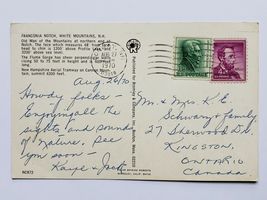 FRANCONIA NOTCH, WHITE MOUNTAINS, N.H.
Old Man of the Mountains at northern end of
Notch. The face which measures 48' from fore-
head to chin is 1200' above Profile Lake and
3200' above sea level.
The Flume Gorge has sheer perpendicular walls
rising 50 to 75 feet in height and is 800 feet
New Hampshire Aerial Tramway on Cannon Moun-
tain, summit 4200 feet.
AUG 27
1970
4¢
Aug 26/70
Howdy folks –
Enjoying all the
sights and sounds
of nature. See
you soon –
Kaye & Jack
Mr & Mrs. K. E.
Schwarz & family
27 Sherwood Dr.
KINGSTON
ONTARIO
Canada.
NC973